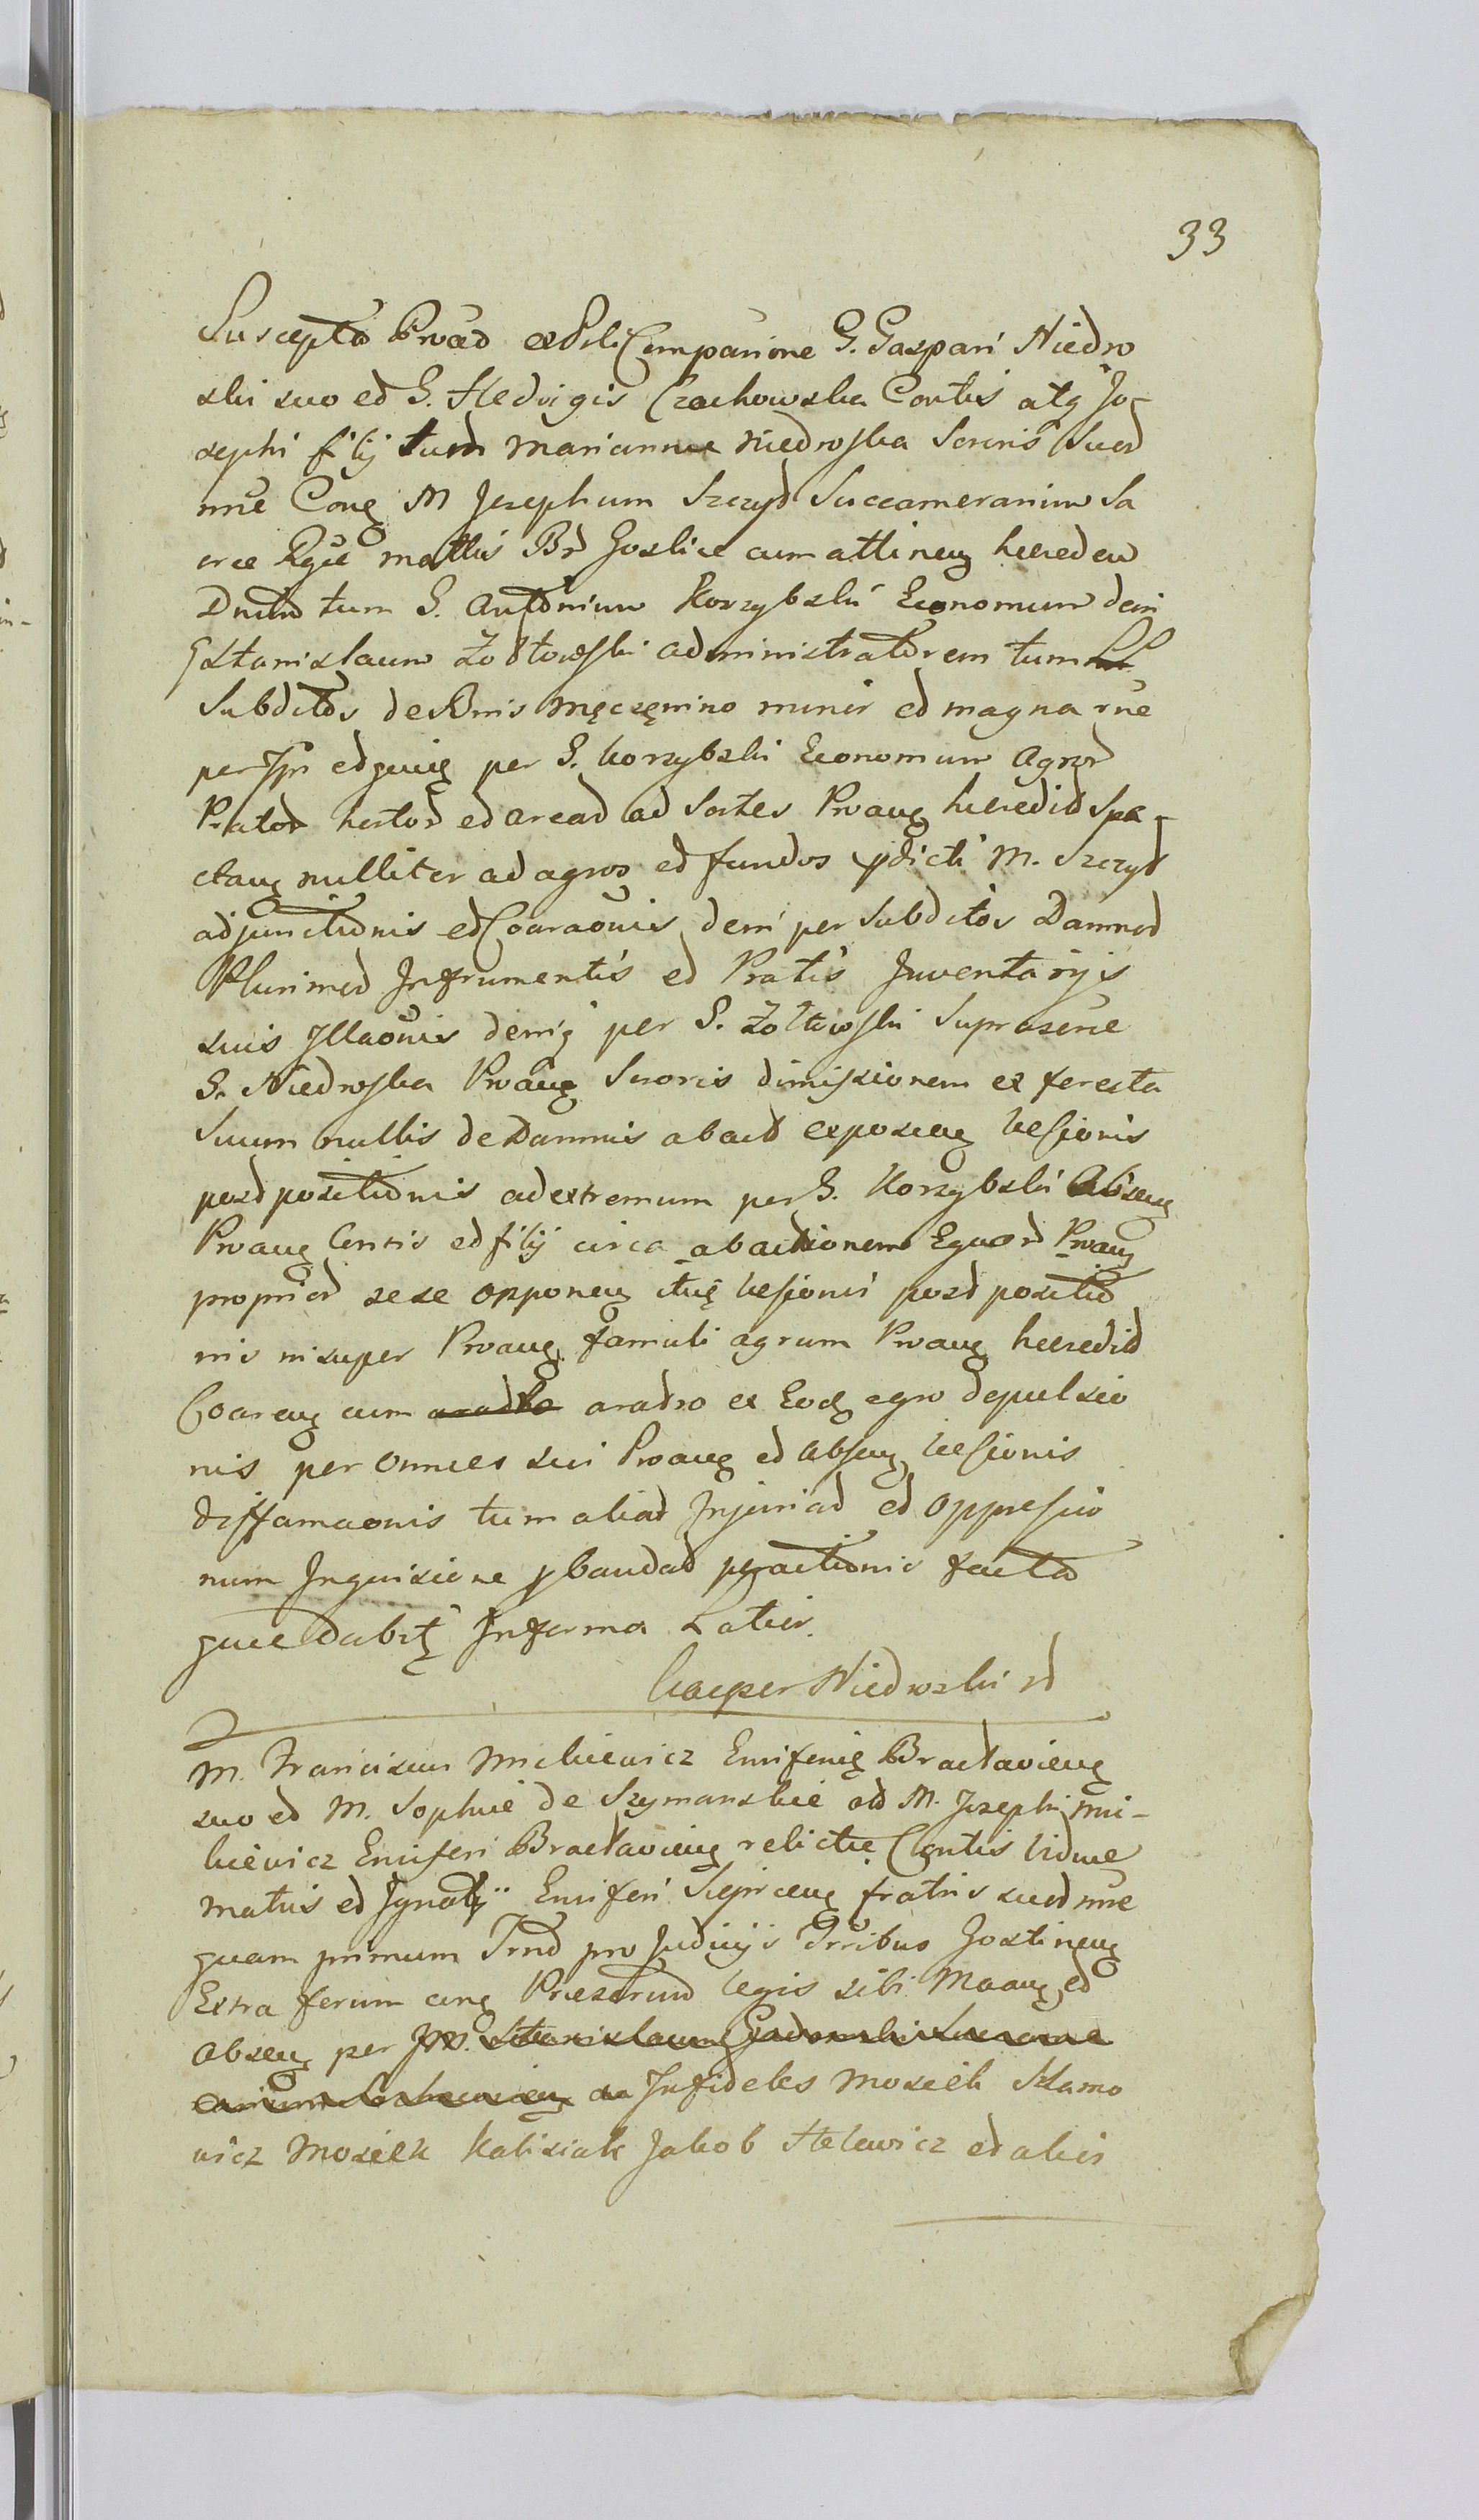 33
Suscepta Provad ex Pnli Comparione G. Gaspari Niedro
ski suo ed G. Hedvigis Czachowska Contis atq Jo-
sephi filij tum Mariannæ Niedroska Sororis Suor
nne Conq M Josephum Szczyd Succamerarium Sa
cræ Rgiæ Mattis Br Goslice cum attineng hæredem
Dnum tum G. Antonium Korzybski Economum dein
G Stanislaum Zołtowski administratorem tum LL
Subditos de Bnis Męczęnino minor ed magna rne
per Ipsi ed per G. Korzybski Economum Agror
Prator hortor ed arear ad Sortes Proang hæredid Spe-
ctang nulliter ad agros ed fundos pdicti M. Szczyd
adjunctionis ed Coaraonis dein per Subditos Damnor
Plurimod In frumentis ed Pratis Inventarijs
suis Illaonis deniq per G. Zołtowski Suprascrie
G. Niedroska Proang Sororis dimissionem ex foresta
Suum nullis de Damnis abacto exposceng læsionis
postpositionis ad extremum per G. Korzybski Abseng
Proang Contis ed filij circa abactionem Equor Proang
proprior sese opponeng læsionis postpositio
nis insuper Proang famuli agrum Proang hæredid
Coareng cum aradro ex Eodq agro depulsio
nis per Omnes sui Proang ed Abseng læsionis
diffamaonis tum aliad Injuriad ed Oppressio
num Inquisione pbandad peractionis facta
quæ Dabitq In forma Latior.
Kacper Niedroski
M. Franciscus Mickiewicz Ensiferiq Bracłavieng
suo ed M. Sophiæ de Szymanskie od M. Josephi Mi-
kiewicz Ensiferi Bracłavieng relictæ Contis Viduæ
matris ed Ignatij Ensiferi fratris suor nne
quam primum Trnd pro Judicijs Trribus Gostineng
Extra forum cing Præscrid legis sibi Maang ed
Abseng per Infideles Mosiek Szlamo
wicz Mosiek Kalisiak Jakob Helewicz ed alior